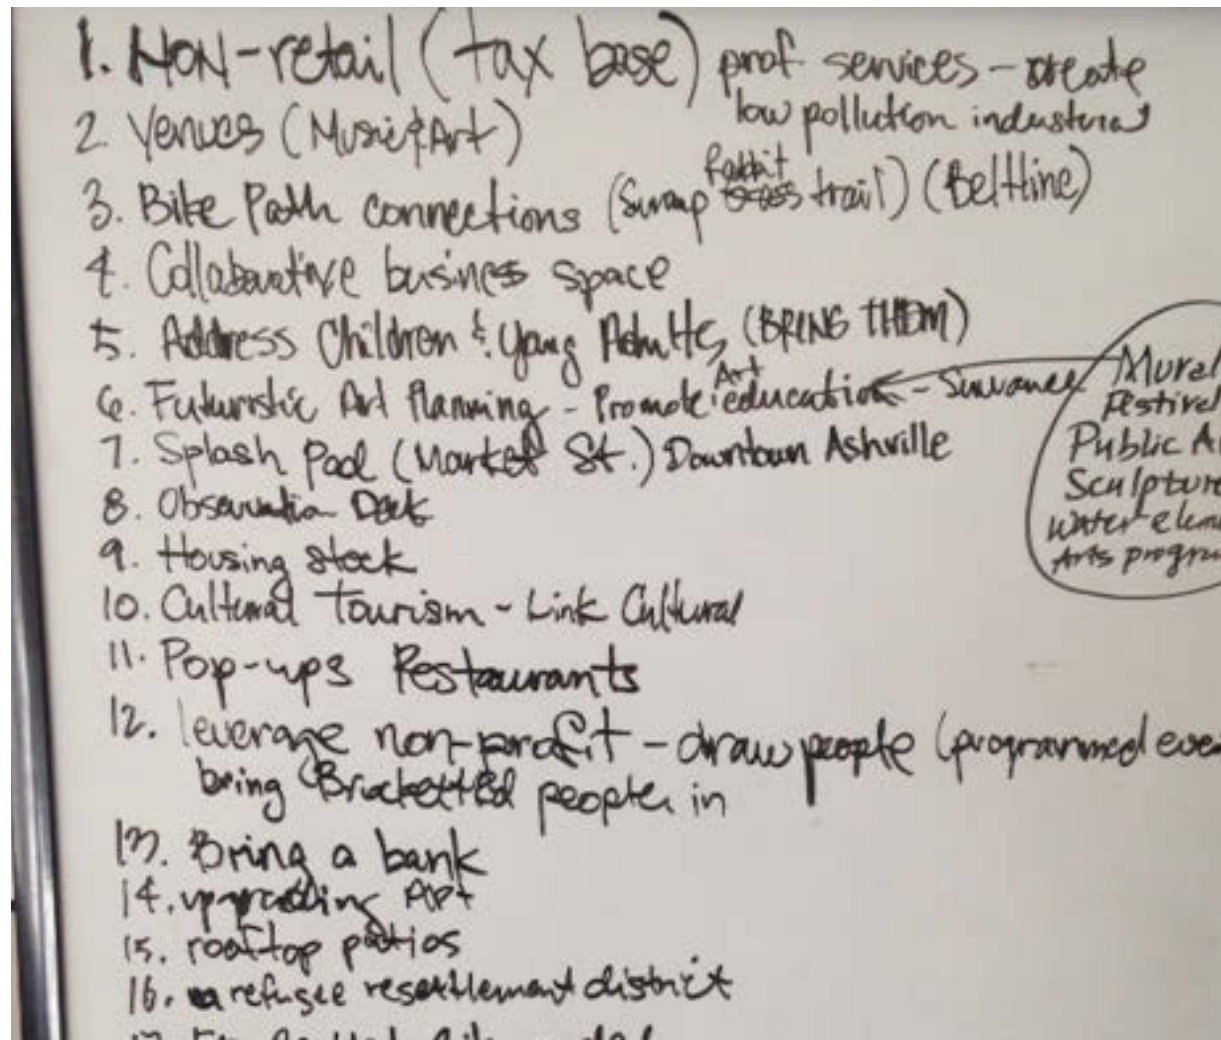 1. NON-retail (tax base) prof. services - create
low pollution industrial
2. Venues (Music & Art)
3. Bike Path connections (Swamp Rabbit trail) (Beltline)
4. Collaborative business space
5. Address Children & Young Adults (BRING THEM)
6. Futuristic Art Planning - Promote Art education - Suwanee
7. Splash Pad (Market St.) Downtown Ashville
8. Observation Deck
9. Housing stock
10. Cultural Tourism - Link Cultural
11. Pop-ups Restaurants
12. leverage non-profit - draw people (programmed
bring people in
13. Bring a bank
14. upgrading APT
15. rooftop patios
16. refugee resettlement district
Mural
Festival
Public
Sculpture
Water
Arts